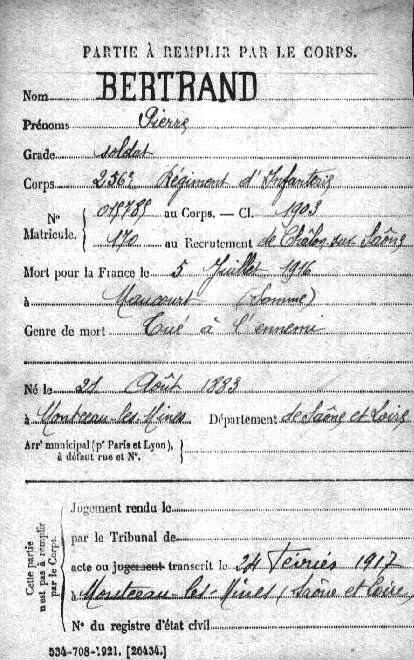 PARTIE À REMPLIR PAR LE CORPS.
Nom BERTRAND
Prénoms Pierre
Grade soldat
Corps 256e Régiment d'Infanterie
N° Matricule. { 015785 au Corps. — Cl. 1903
170 au Recrutement de Châlon sur Saône
Mort pour la France le 5 Juillet 1916
à Maucourt (Somme)
Genre de mort Tué à l'ennemi
Né le 21 Août 1883
à Montceau-les-Mines Département de Saône et Loire
Arrt municipal (pr Paris et Lyon), à défaut rue et N°. }
Cette partie n'est pas à remplir par le Corps.
Jugement rendu le
par le Tribunal de
acte ou jugement transcrit le 24 Février 1917
à Montceau-les-Mines (Saône et Loire
N° du registre d'état civil
534-708-1921. [26434.]